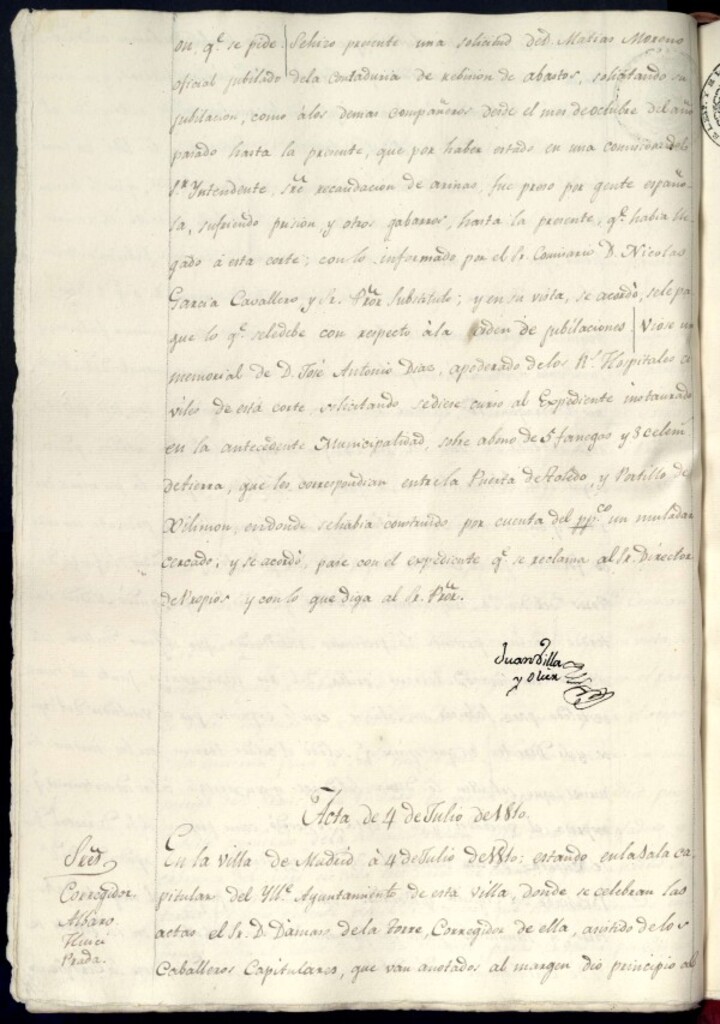 on, q.e se pide | Se hizo presente una solicitud de D. Matias Moreno
oficial jubilado de la Contaduria de rebision de abastos, solicitando su
jubilacion, como à los demas compañeros desde el mes de octubre del año
pasado hasta la presente, que por haber estado en una comision del
S.r Yntendente, sre recaudacion de arinas, fue preso por gente españo-
la, sufriendo prision, y otros gabarros, hasta la presente, q.e habia lle
gado à esta corte; con lo informado por el Sr. Comisario D. Nicolas
Garcia Cavallero y Sr. Pror Substituto; y en su vista, se acordò, se le pa
gue lo q.e se le debe con respecto à la orden de jubilaciones | Viose un
memorial de D. José Antonio Diaz, apoderado de los R.s Hospitales ci
viles de esta corte, solicitando se diese curso al Expediente instaurado
en la antecedente Municipalidad, sobre abono de 5 fanegas y 3 celem.s
de tierra, que les correspondian entre la Puerta de Toledo, y Portillo de
Gilimon, en donde se habia construido por cuenta del pp.co un muladar
cercado; y se acordò, pase con el expediente q.e se reclama al Sr. Director
de Propios y con lo que diga al Sr. Pror.
Juan Villa
y Olier
Acta de 4 de Julio de 1810.
Sres
Corregidor.
Albaro.
Prada.
En la villa de Madrid à 4 de Julio de 1810: estando en la Sala ca
pitular del Yll.e Ayuntamiento de esta villa, donde se celebran las
actas el Sr. D. Damaso de la Torre, Corregidor de ella, asistido de los
Caballeros Capitulares, que van anotados al margen dio principio al